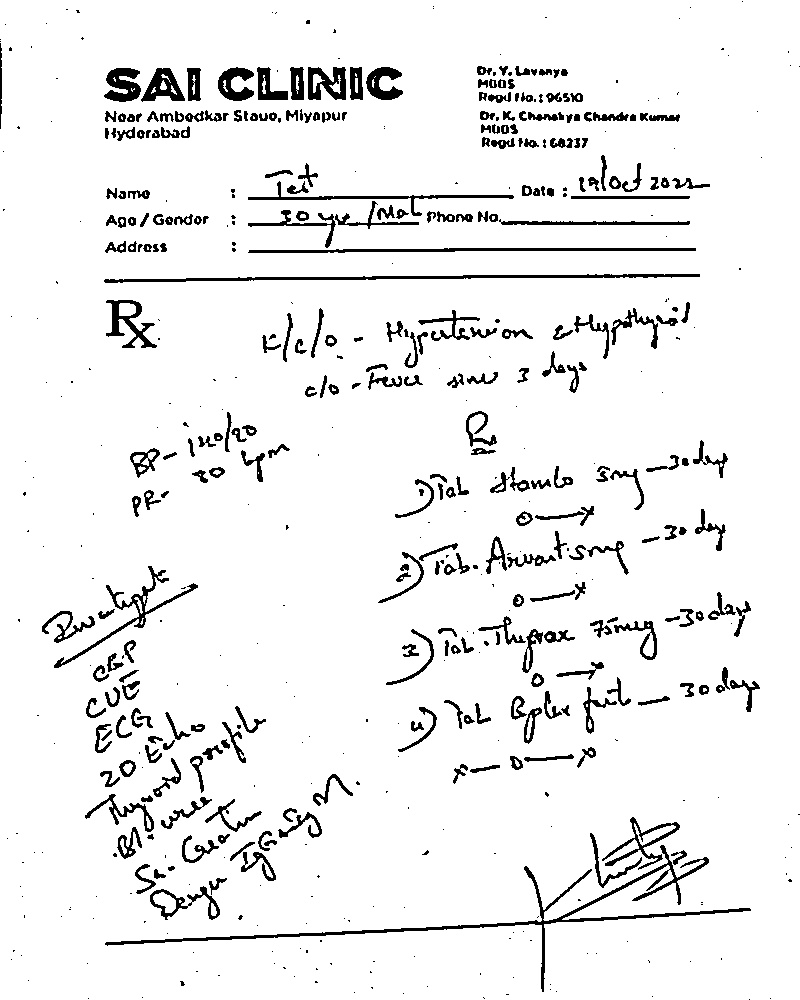 SAI CLINIC
Near Ambedkar Staue, Miyapur
Hyderabad
Dr. Y. Lavanya
MBBS
Regd No. : 96510
Dr. K. Chanakya Chandra Kumar
MBBS
Regd No. : 68237
Name : Test
Date : 19/Oct 2022
Age / Gender : 30 yrs / Mal
Phone No.
Address :
Rx
K/c/o - Hypertension & Hypothyroid
c/o - Fever since 3 days
BP - 140/90
PR - 80 bpm
Rx
1) Tab Stamlo 5mg - 30 days
o → x
2) Tab. 5mg - 30 day
o → x
3) Tab. Thyrox 75mcg - 30 days
o → x
4) Tab Bplex forte - 30 days
x - o - x
CBP
CUE
ECG
2D Echo
Thyroid profile
Bl. urea
Sr. Creatin
Dengu IgG and IgM.